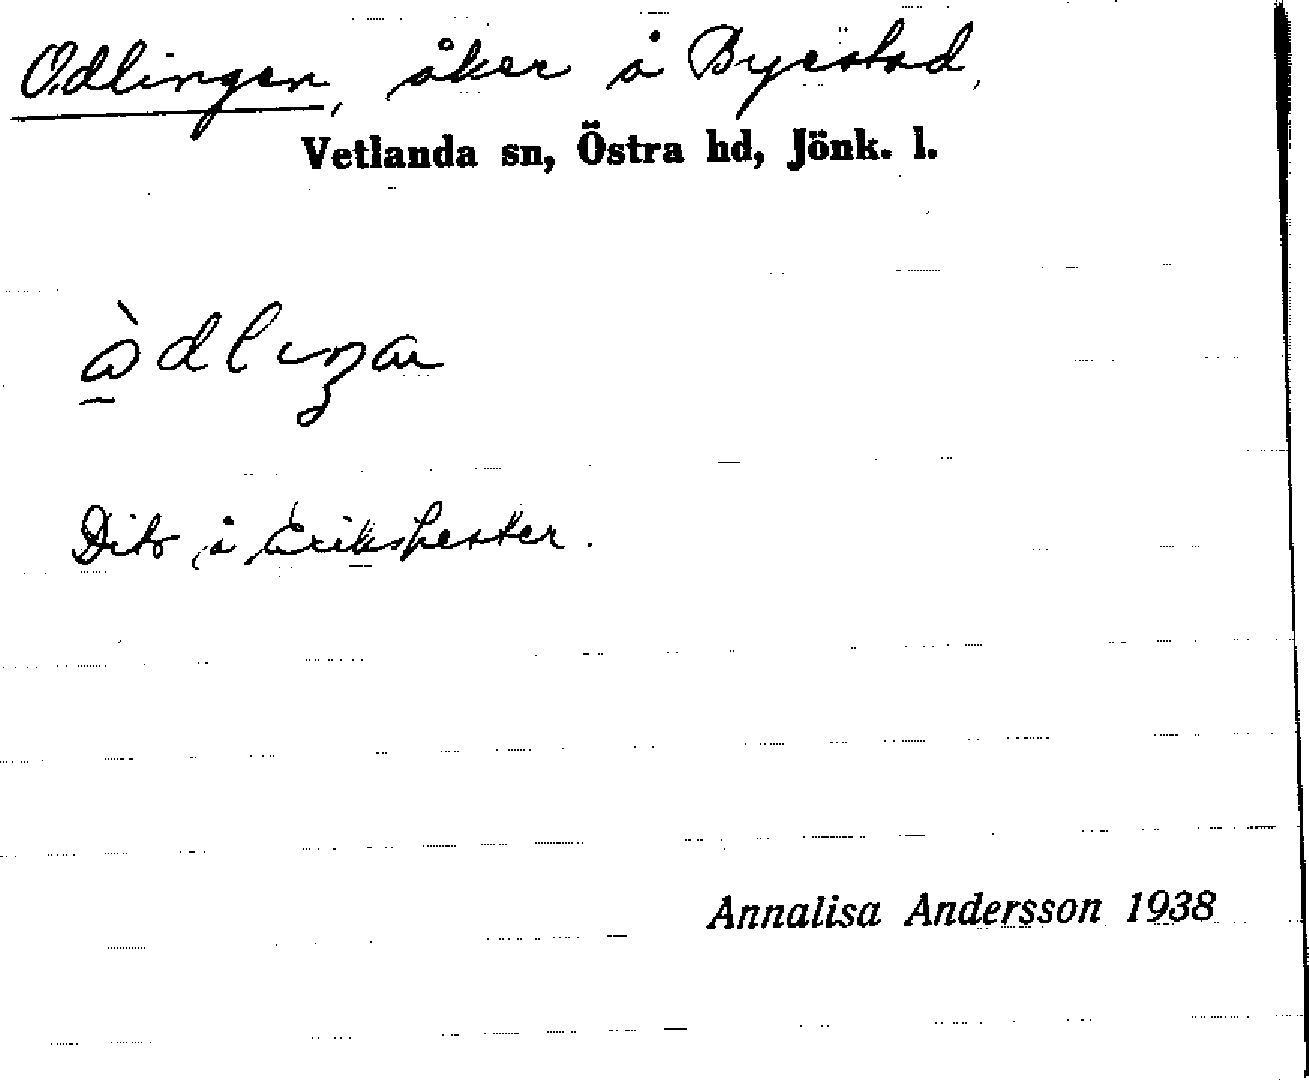 Odlingen, åker å Byestad,
Vetlanda sn, Östra hd, Jönk. l.
Dito å Erikshester.
Annalisa Andersson 1938